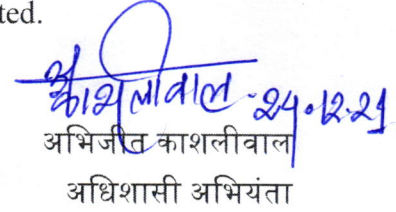 ted.
काशलीवाल 24.12.21
अभिजीत काशलीवाल
अधिशासी अभियंता